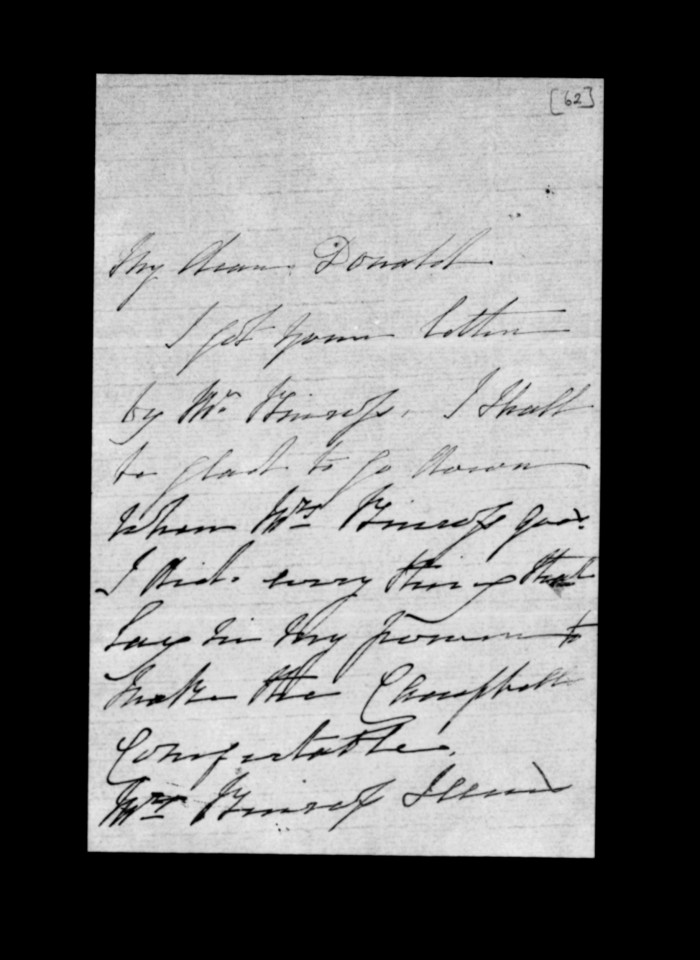 [62]
My dear Donald
I got your letter
by Mr Kinross. I Shall
be glad to go down
when Mrs Kinross goes.
I did every thing that
Lay in my power to
make the Campbells
Comfortable.
Mrs Kinross